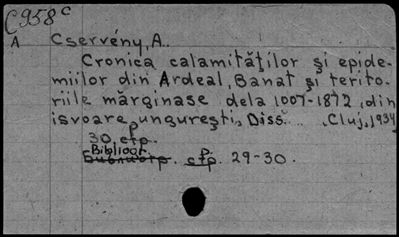 C958c
A Cservény, A.
Cronica calamităţilor şi epide-
miilor din Ardeal, Banat şi terito-
riile mărginase, dela 1007-1872, din
isvoare ungureşti, Diss. Cluj, 1934
30 p. стр.
Bibliogr.
Библиогр. p. стр. 29-30.